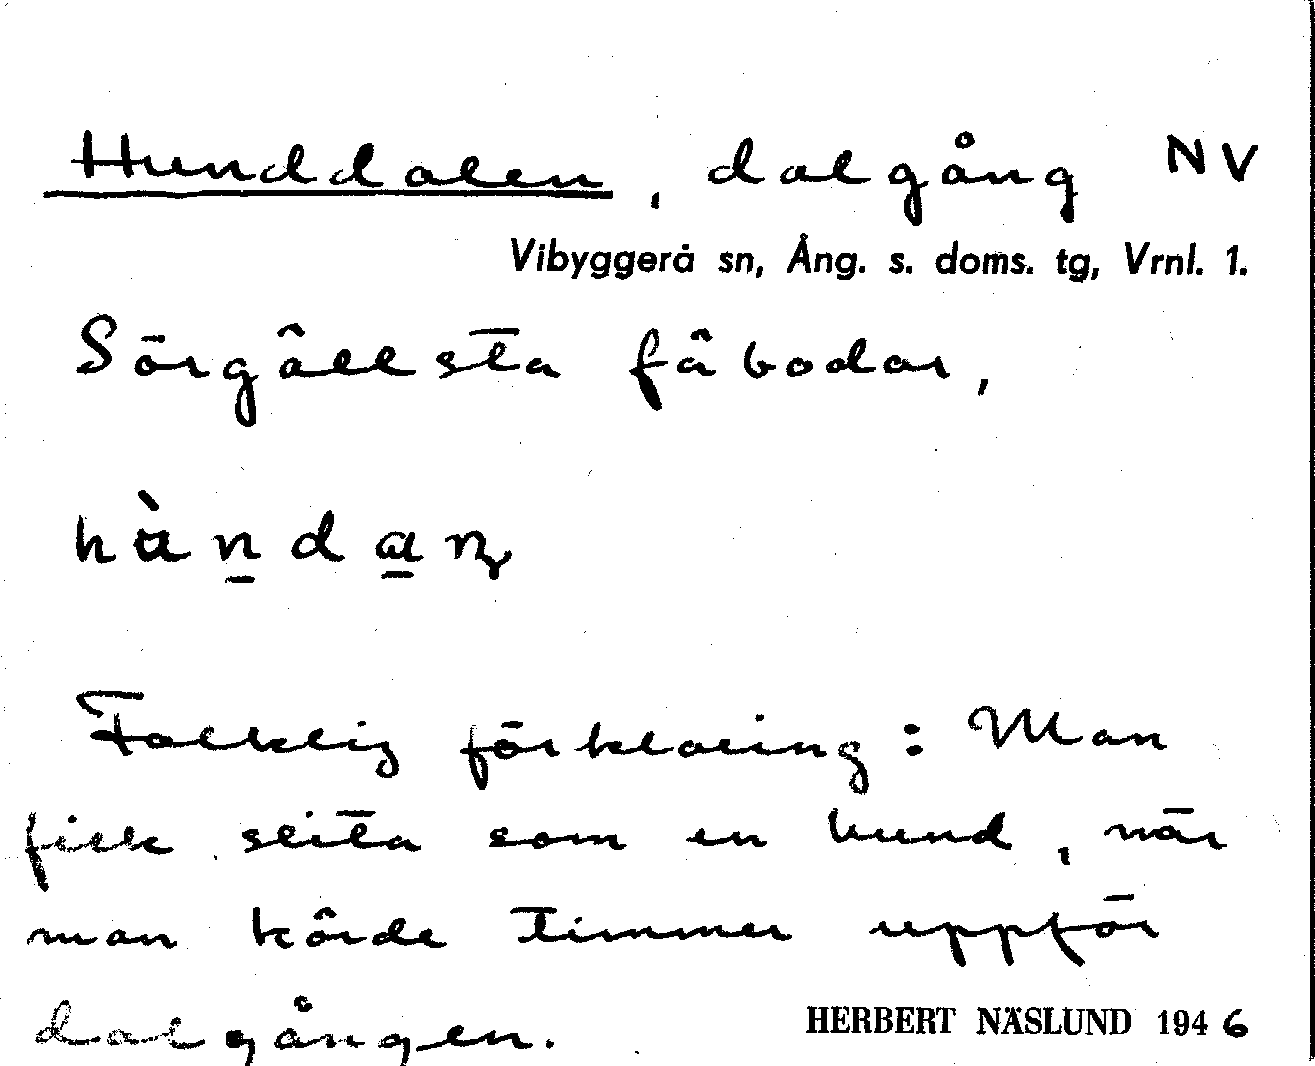 Hunddalen, dalgång NV
Vibyggerå sn, Ång. s. doms. tg, Vrnl. 1.
Sörgällsta fäbodar,
hùn̠da̠ɳ
Folklig förklaring: Man
fick slita som en hund, när
man körde timmer uppför
dalgången.
HERBERT NÄSLUND 1946